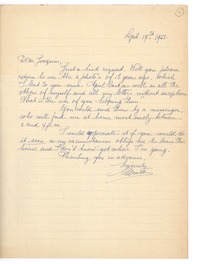 Sept. 19th 1951
Dear Joaquin:
Just a kind request. Will you please
return to me the 2 photo's of 18 years ago, which
I lent to you each April last as well as all the
others of myself and all my letters without exception.
What is the use of you keeping them.
You could send them by a messenger,
who will find me at home most surely between
2 and 4 p.m.
I would appreciate it if you would do
it soon as my circumstances oblige me to leave the
house and I don't know yet where I'm going.
Thanking you in advance,
Sincerely